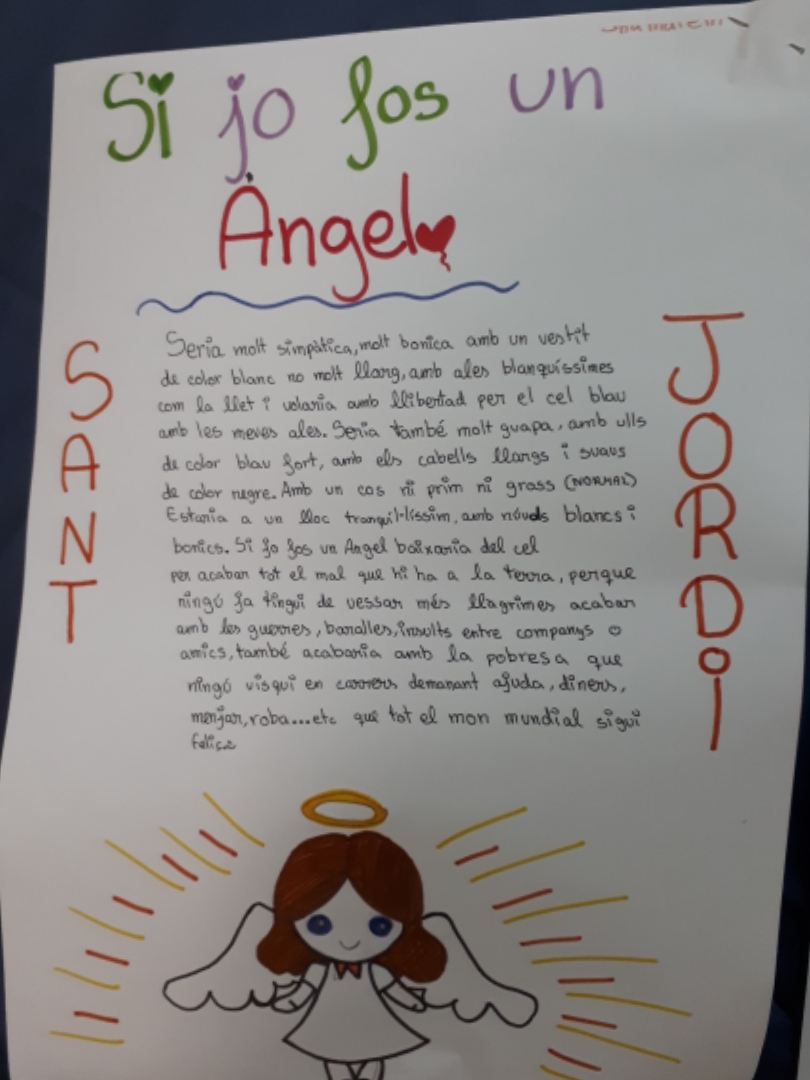 Si jo fos un
Àngel
SANT
JORDI
Seria molt simpàtica, molt bonica amb un vestit
de color blanc no molt llarg, amb ales blanquíssimes
com la llet i volaria amb llibertad per el cel blau
amb les meves ales. Seria també molt guapa, amb ulls
de color blau fort, amb els cabells llargs i suaus
de color negre. Amb un cos ni prim ni grass (NORMAL)
Estaria a un lloc tranquil·líssim, amb núvols blancs i
bonics. Si jo fos un Angel baixaria del cel
per acabar tot el mal que hi ha a la terra, perque
ningú ja tingui de vessar més llagrimes acabar
amb les guerres, baralles, insults entre companys o
amics, també acabaria amb la pobresa que
ningú visqui en carrers demanant ajuda, diners,
menjar, roba...etc que tot el mon mundial sigui
feliç